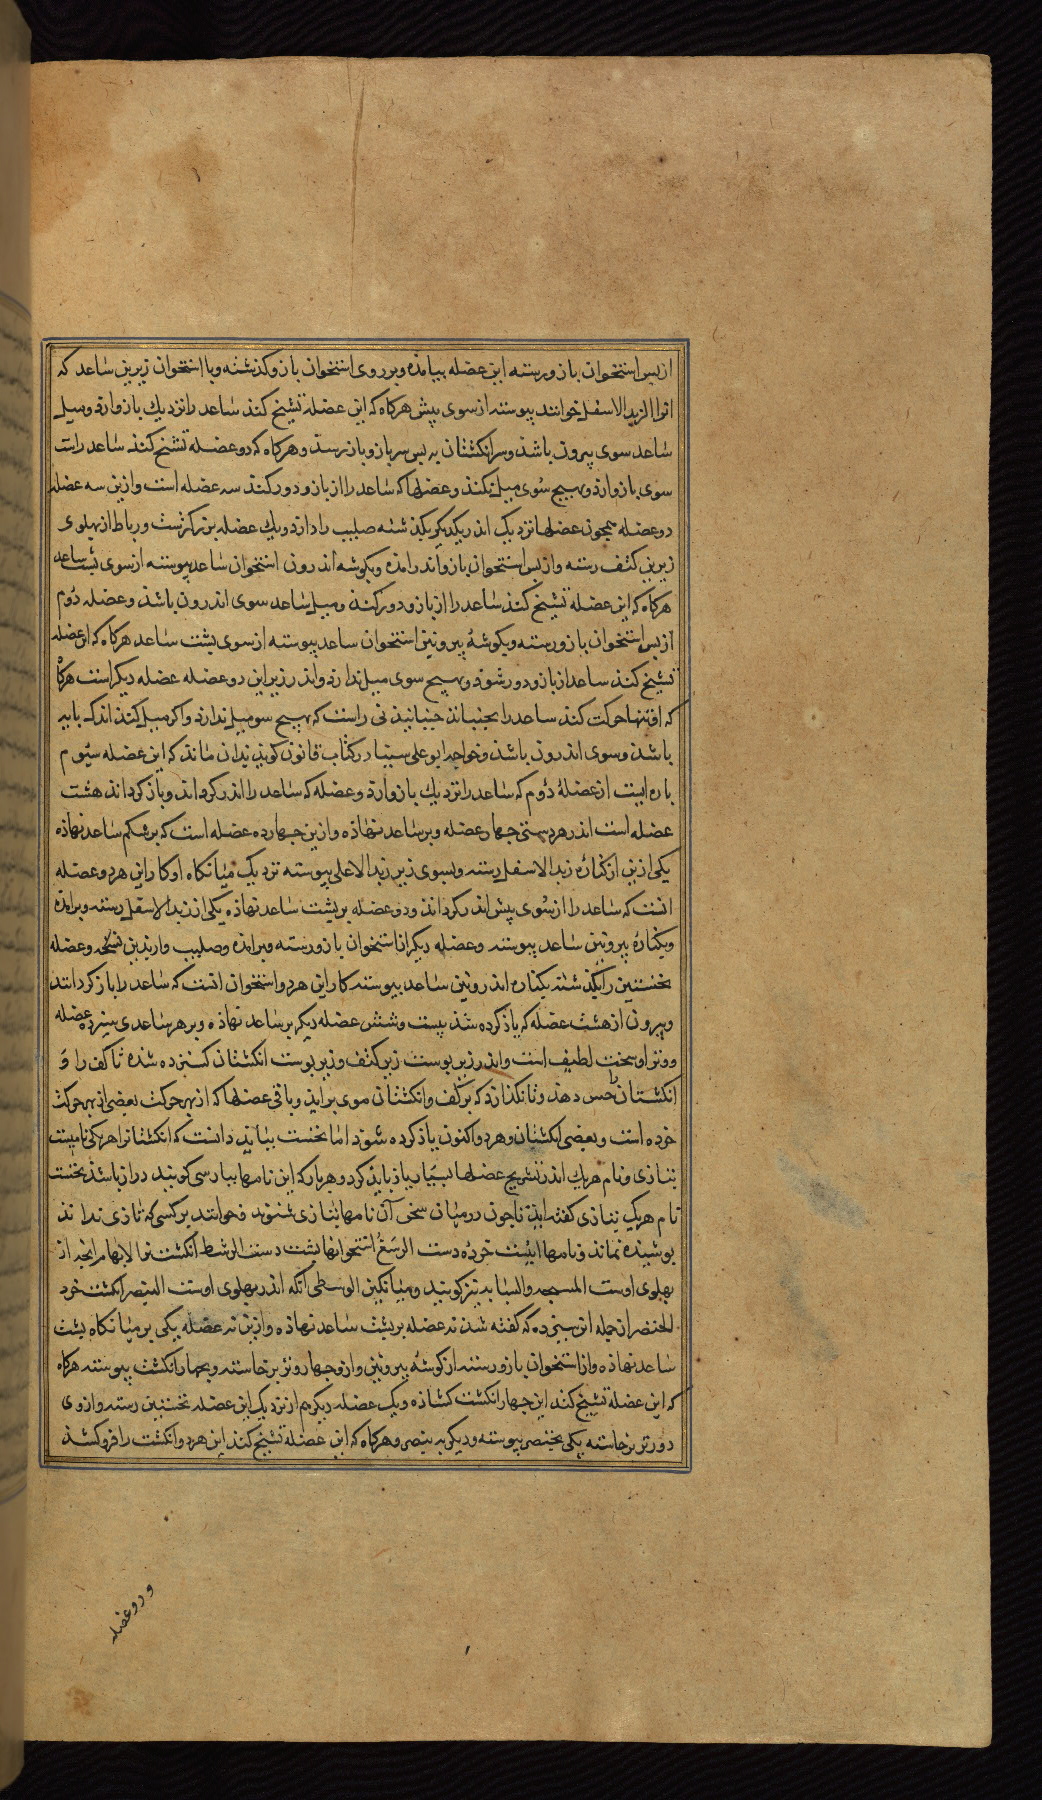 از پس استخوان بازو رسته این عضله بیامذه و بر روی استخوان بازو کذشته و با استخوان زیرین ساعد که
انرا الزند الاسفل خوانند پیوسته از سوی پیش هرکاه که این عضله تشنج کند ساعد را نزدیك بازو ارد و میل
ساعد سوی بیرون باشذ و سر انکشتان به پس سر بازو باز رسذ و هرکاه که دو عضله تشنج کند ساعد راست
سوی بازو ارد و هیچ سوی میل نکند و عضلها که ساعد را از بازو دور کند سه عضله است و ازین سه عضله
دو عضله همجون عضلها نزدیک اندر یکدیکر بکذشته صلیب را دارذ و یك عضله بزرکترست و رباط از پهلوی
زیرین کتف رسته و از پس استخوان بازو اندر امذه و بکوشه اندرون استخوان ساعد پیوسته از سوی پشت ساعد
هرکاه که این عضله تشنج کند ساعد را از بازو دور کند و میل ساعد سوی اندرون باشذ و عضله دوم
از پس استخوان بازو رسته و بکوشهٔ بیرونین استخوان ساعد پیوسته از سوی پشت ساعد هرکاه که این عضله
تشنج کند ساعد از بازو دور شوذ و هیچ سوی میل ندارذ و اندر زیر این دو عضله عضله دیکر است هرکاه
که او تنها حرکت کند ساعد را بجنباند جنبانیدنی راست که هیچ سو میل ندارد و اکر میل کند اندک مایه
باشذ و سوی اندرون باشذ و خواجه ابو علی سینا در کتاب قانون کویذ بذان ماند که این عضله سیوم
باره ایست از عضلهٔ دوم که ساعد را نزدیك بازو ارد و عضله که ساعد را اندر کرداند و باز کرداند هشت
عضله است اندر هر دستی جهار عضله و بر ساعد نهاذه و ازین جهار دو عضله است که بر شکم ساعد نهاذه
یکی ازین از کناره زند الاسفل رسته و بسوی زیر زند الاعلی پیوسته نزدیک میانکاه او کار این هر دو عضله
انست که ساعد را از سوی پیش اندر کرداند و دو عضله بر پشت ساعد نهاذه یکی از زند الاسفل رسته و بر امذه
و بکنارهٔ بیرونین ساعد پیوسته و عضله دیکر از استخوان بازو رسته و بر امذه و صلیب وار بدین عضله
نخستین را بکذشته بکناره اندرونین ساعد پیوسته کار این هر دو استخوان انست که ساعد را باز کردانند
و بیرون از هشت عضله که یاذ کرده شذ بیست و شش عضله دیکر بر ساعد نهاذه و بر هر ساعدی سیزده عضله
و وتر او سخت لطیف است و اندر زیر پوست زیر کتف و زیر پوست انکشتان کسترده شده تا کف را و
انکشتان را حس دهذ و نکذارد که بر کف و انکشتان موی براید و باقی عضلها که از بهر حرکت بعضی از بهر حرکت
خرده است و بعضی انکشتان و هر دو اکنون یاذ کرده شوذ اما نخست بباید دانست که انکشتانرا هر یکی نامیست
بتازی و نام هر یك اندر تشریح عضلها بسیار یاذ بایذ کرد و هر بار که این نامها ببارسی کویند دراز باشذ نخست
نام هر یک بتازی کفته ایذ تا جون در میان سخن ان نامها بتازی شنوند و خوانند بر کسی که تازی نداند
پوشیذه نماند و نامها اینست خرده دست الرسغ استخوانها پشت دست المشط انکشت نر الابهام انجه از
پهلوی اوست المسبحه و السبابه نیز کویند و میانکین الوسطی انکه اندر پهلوی اوست البنصر انکشت خرد
الخنصر از جمله این سیزده که کفته شذ نه عضله بر پشت ساعد نهاذه و ازین نه عضله یکی بر میانکاه پشت
ساعد نهاذه و از استخوان بازو رسته از کوشهٔ بیرونین و ازو جهار وتر برخاسته و بجهار انکشت پیوسته هرکاه
که این عضله تشنج کند این جهار انکشت کشاذه و یک عضله دیکر هم از نزدیک این عضله نخستین رسته و از وی
دو وتر برخاسته یکی بخنصر پیوسته و دیکر به بنصر و هرکاه که این عضله تشنج کند این هر دو انکشت را فرو کشد
و دو عضله